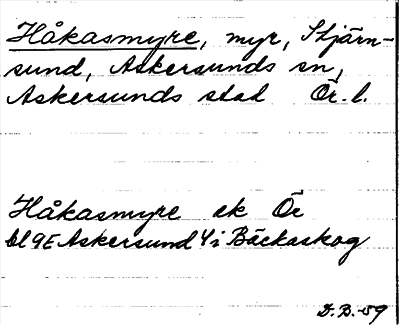 Håkasmyre, myr, Stjärn-
sund, Askersunds sn,
Askersunds stad Ör. l.
Håkasmyre ek Ör
bl 9E Askersund 4i Bäckaskog
D.B.-59